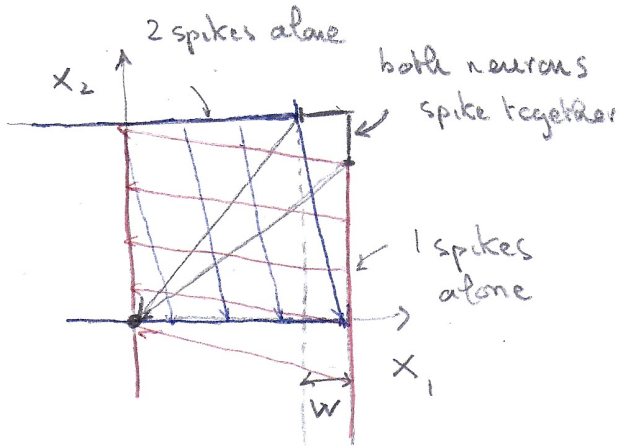 2 spikes alone
X2
both neurons
spike together
1 spikes
alone
X1
W